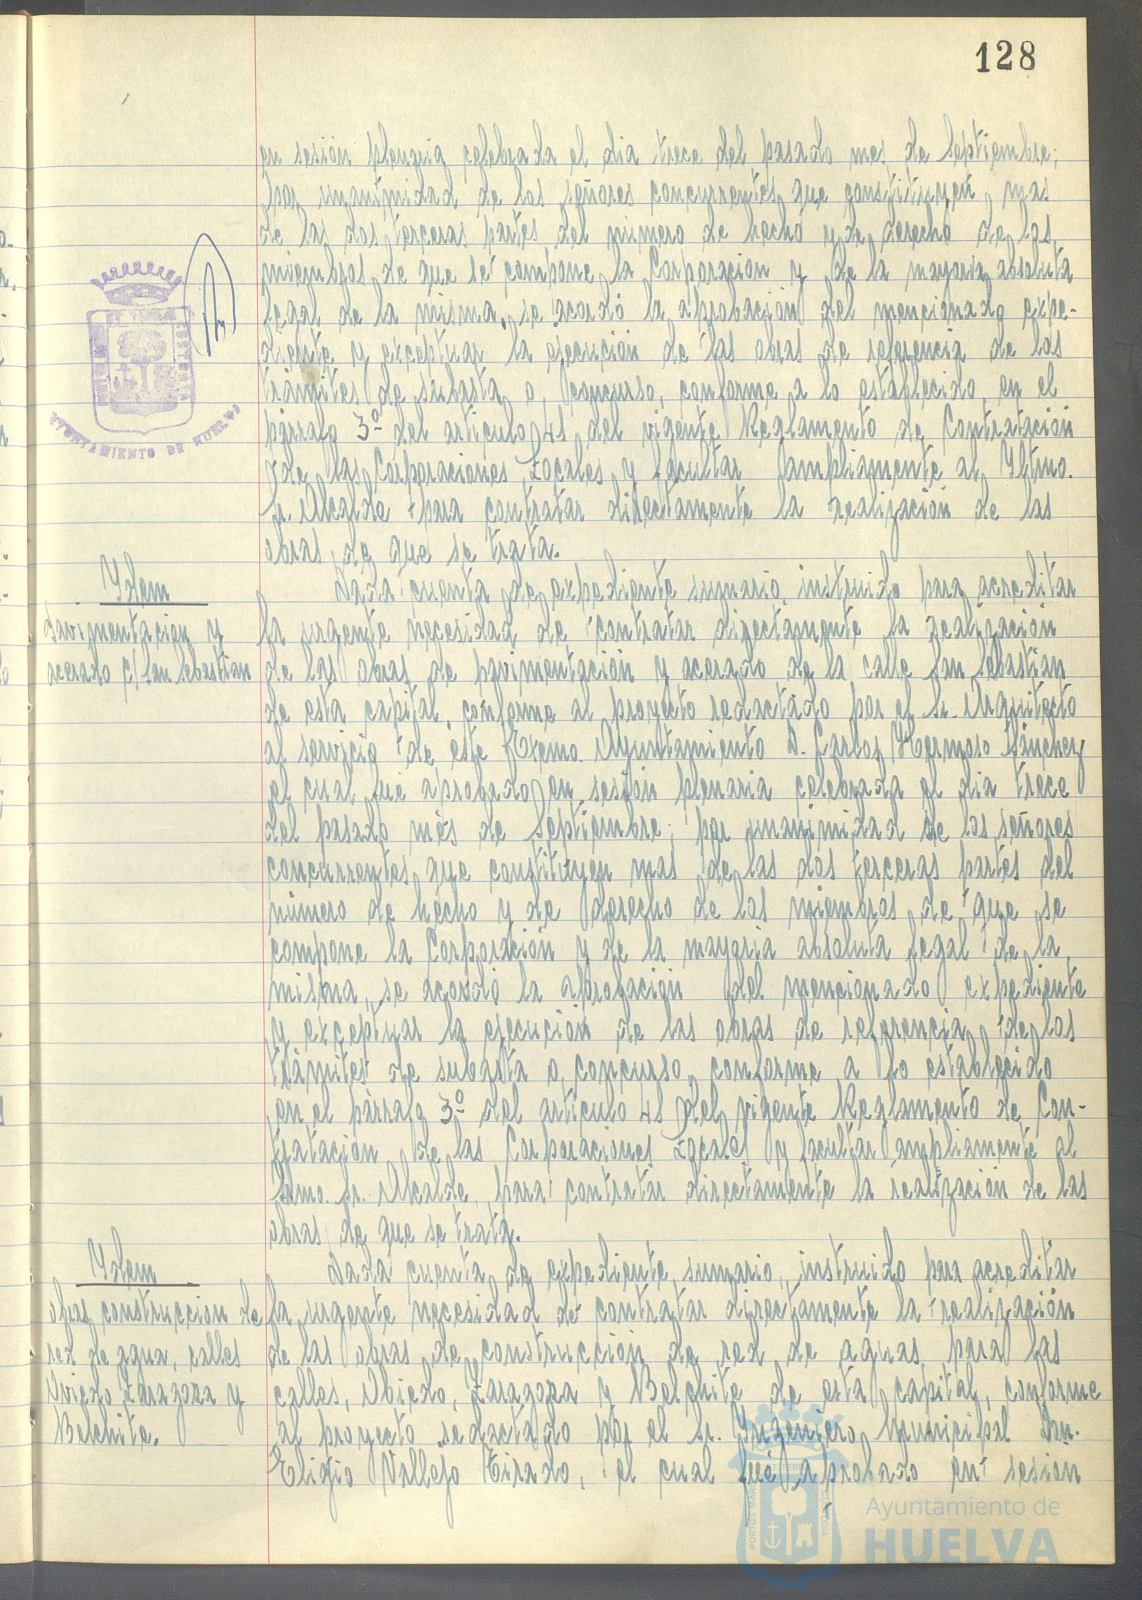 128
en sesión plenaria celebrada el dia trece del pasado mes de Septiembre;
por unanimidad de los señores concurrentes que constituyen mas
de las dos terceras partes del número de hecho y de derecho de los
miembros de que se compone la Corporación y de la mayoria absoluta
legal de la misma, se acordó la aprobación del mencionado expe-
diente y exceptuar la ejecución de las obras de referencia de los
trámites de subasta o concurso, conforme a lo establecido en el
párrafo 3º del artículo 41 del vigente Reglamento de Contratación
de las Corporaciones Locales y facultar ampliamente al Yltmo.
Sr. Alcalde para contratar directamente la realización de las
obras de que se trata.
Ydem
Pavimentación y
acerado c/ San Sebastian
Dada cuenta de expediente sumario, instruido para acreditar
la urgente necesidad de contratar directamente la realización
de las obras de pavimentación y acerado de la calle San Sebastian
de esta capital, conforme al proyecto redactado por el Sr. Arquitecto
al servicio de este Excmo. Ayuntamiento D. Carlos Hermoso Sánchez
el cual fué aprobado en sesión plenaria celebrada el dia trece
del pasado mes de Septiembre; por unanimidad de los señores
concurrentes que constituyen mas de las dos terceras partes del
número de hecho y de derecho de los miembros de que se
compone la Corporación y de la mayoria absoluta legal de la
misma, se acordó la aprobación del mencionado expediente
y exceptuar la ejecución de las obras de referencia de los
trámites de subasta o concurso, conforme a lo establecido
en el párrafo 3º del artículo 41 del vigente Reglamento de Con-
tratación de las Corporaciones Locales y facultar ampliamente al
Iltmo. Sr. Alcalde, para contratar directamente la realización de las
obras de que se trata.
Ydem
obras construccion de
red de agua, calles
Oviedo Zaragoza y
Belchite.
Dada cuenta de expediente sumario, instruido para acreditar
la urgente necesidad de contratar directamente la realización
de las obras de construcción de red de aguas, para las
calles, Obiedo, Zaragoza y Belchite de esta capital, conforme
al proyecto redactado por el Sr. Ingeniero Municipal Don.
Eligio Vallejo Tirado, el cual fué aprobado en sesion
AYUNTAMIENTO DE HUELVA
Ayuntamiento de
HUELVA